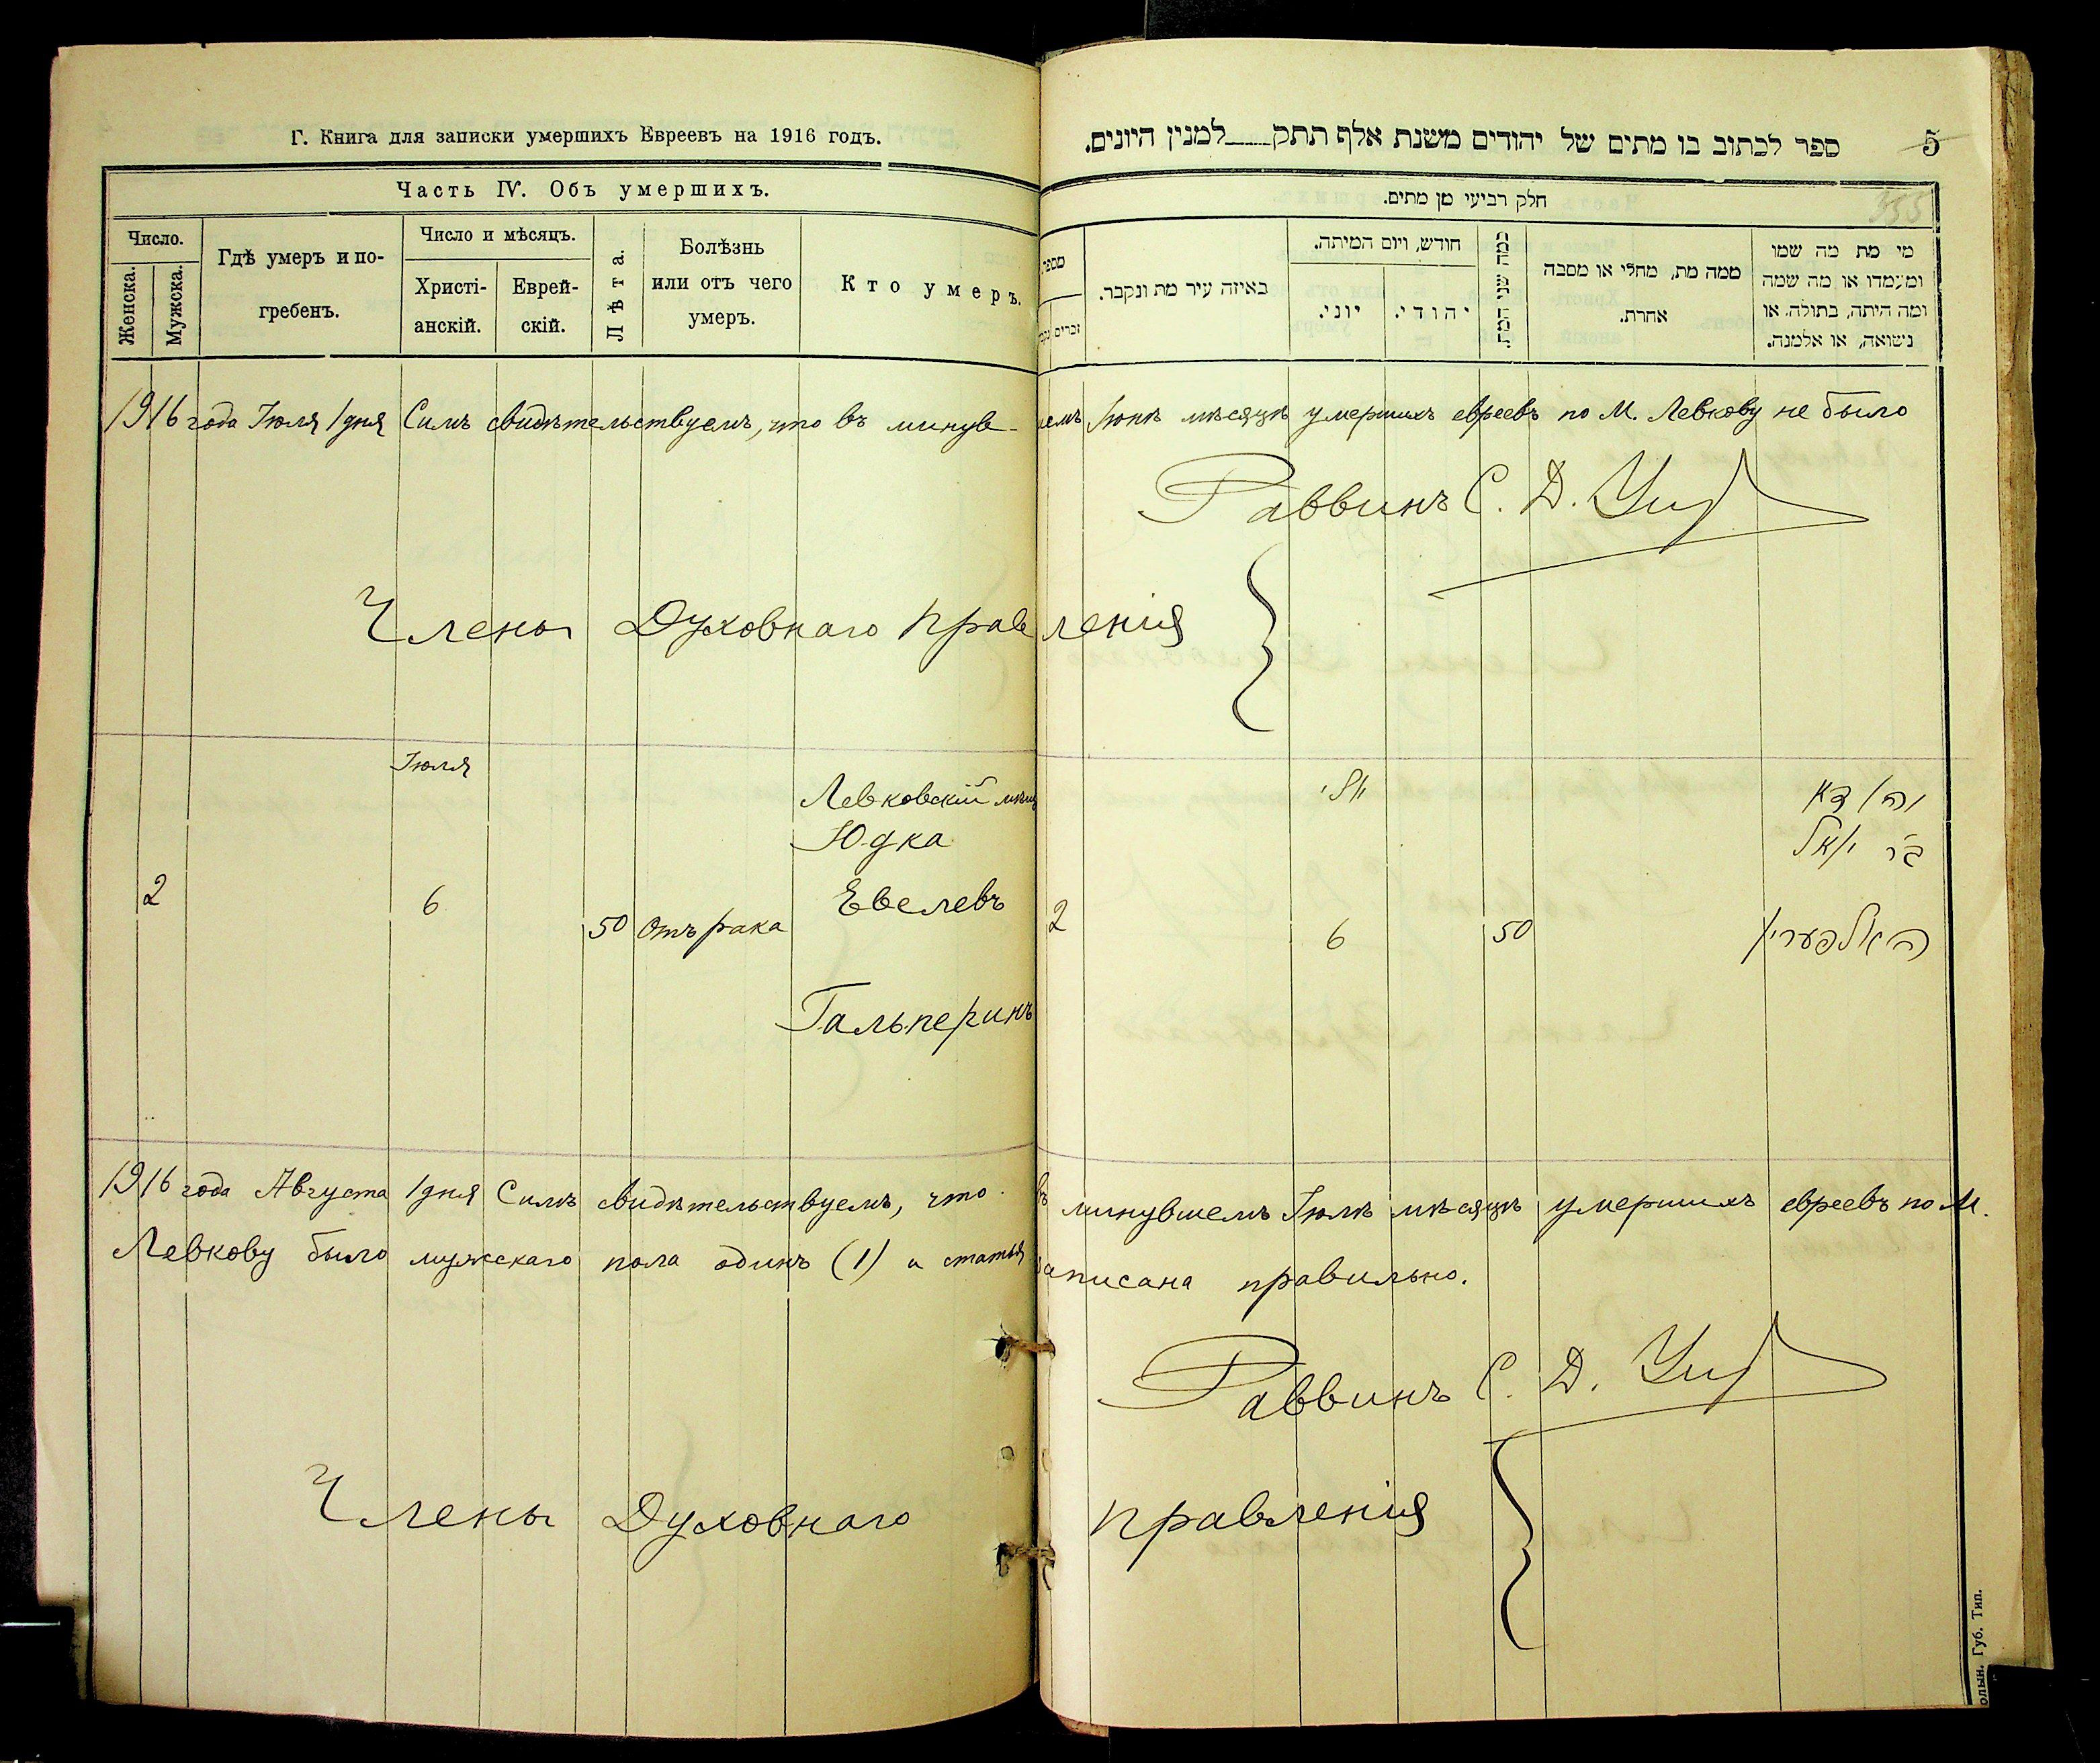 Г. Книга для записки умершихъ Евреевъ на 1916 годъ.
Часть IV. Объ умершихъ.
Число.
Женска.
Мужска.
Гдѣ умеръ и по-
гребенъ.
Число и мѣсяцъ.
Христі-
анскій.
Еврей-
скій.
Лѣта.
Болѣзнь
или отъ чего
умеръ.
Кто умеръ.
ספר לכתוב בו מתים של יהודים משנת אלף תתק___למנין היונים.
5
355
חלק רביעי מן מתים.
מספר
זכרים
באיזה עיר מת ונקבר.
חודש, ויום המיתה.
יוני.
יהודי.
כמה שני המת.
ממה מת, מחלי או מסבה
אחרת.
מי מת מה שמו
ומעמדו או מה שמה
ומה היתה, בתולה, או
נשואה, או אלמנה.
1916 года Іюля 1 дня Симъ свидѣтельствуемъ, что въ минув- шемъ Іюнѣ мѣсяцѣ умершихъ евреевъ по М. Левкову не было
Раввинъ С. Д.
Члены Духовнаго Правленія
Іюля
Левковскій мѣщ
Юдка
2 6 50 Отъ рака Евелевъ
Гальперинъ
יולי
יהודא
בר יואל
2 6 50 האלפערין
1916 года Августа 1 дня Симъ свидѣтельствуемъ, что въ минувшемъ Іюлѣ мѣсяцѣ умершихъ евреевъ по М.
Левкову было мужскаго пола одинъ (1) и статья записана правильно.
Раввинъ С. Д.
Члены Духовнаго правленія
олын. Губ. Тип.